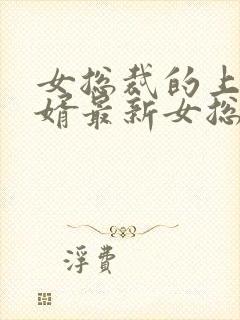 女总裁的上
婿最新女总
浮费